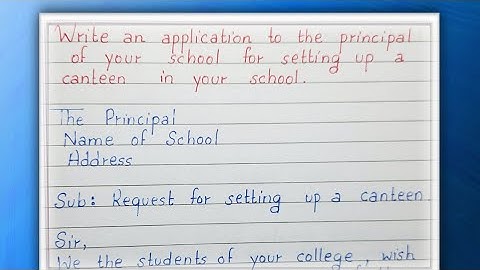 Write an application to the principal
of your school for setting up a
canteen in your school.
The Principal
Name of School
Address
Sub: Request for setting up a canteen
Sir,
We the students of your college, wish